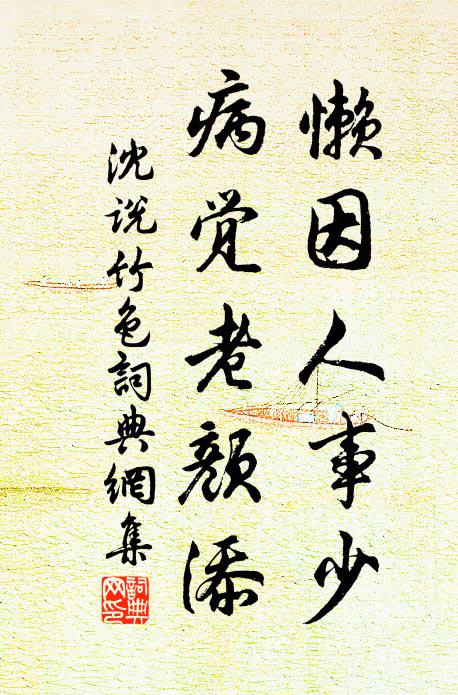 懒因人事少
病觉老颜添
沈说竹色詞典網集
詞典网印